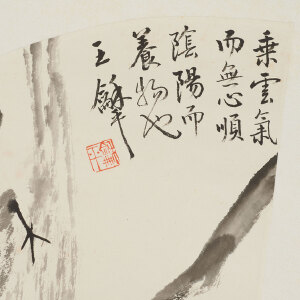 乘雲氣
而無心順
陰陽而
養物也
王龢